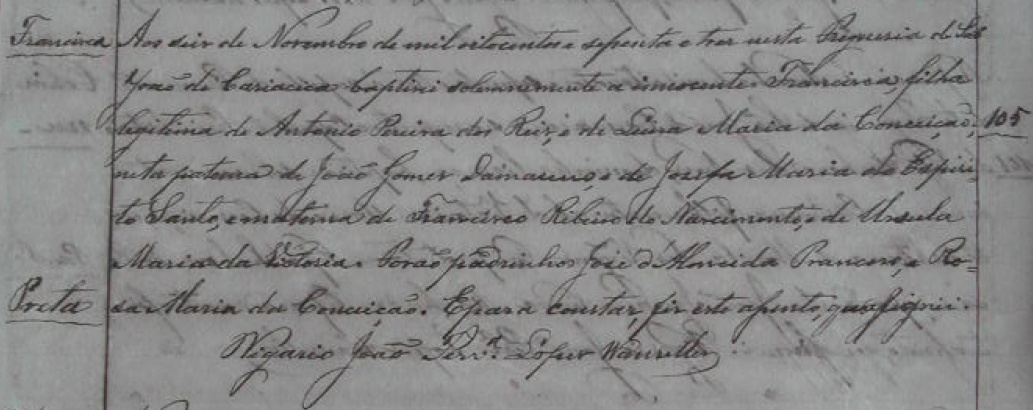 Francisca Aos seis de Novembro de mil oitocentos e setenta e tres nesta Freguesia de São
João de Cariacica baptisei solemnemente a innocente Francisca, filha
legitima de Antonio Pereira dos Reis, e de Luisa Maria da Conceição, 105
neta paterna de João Gomes Damasceno, e de Josefa Maria do Espiri-
to Santo, e materna de Francisco Ribeiro do Nascimento, e de Ursula
Maria da Victoria. Forão padrinhos José d'Almeida e Ro-
Preta sa Maria da Conceição. E para constar, fiz este assento, que assignei.
Vigario João Lopes Wanzeller